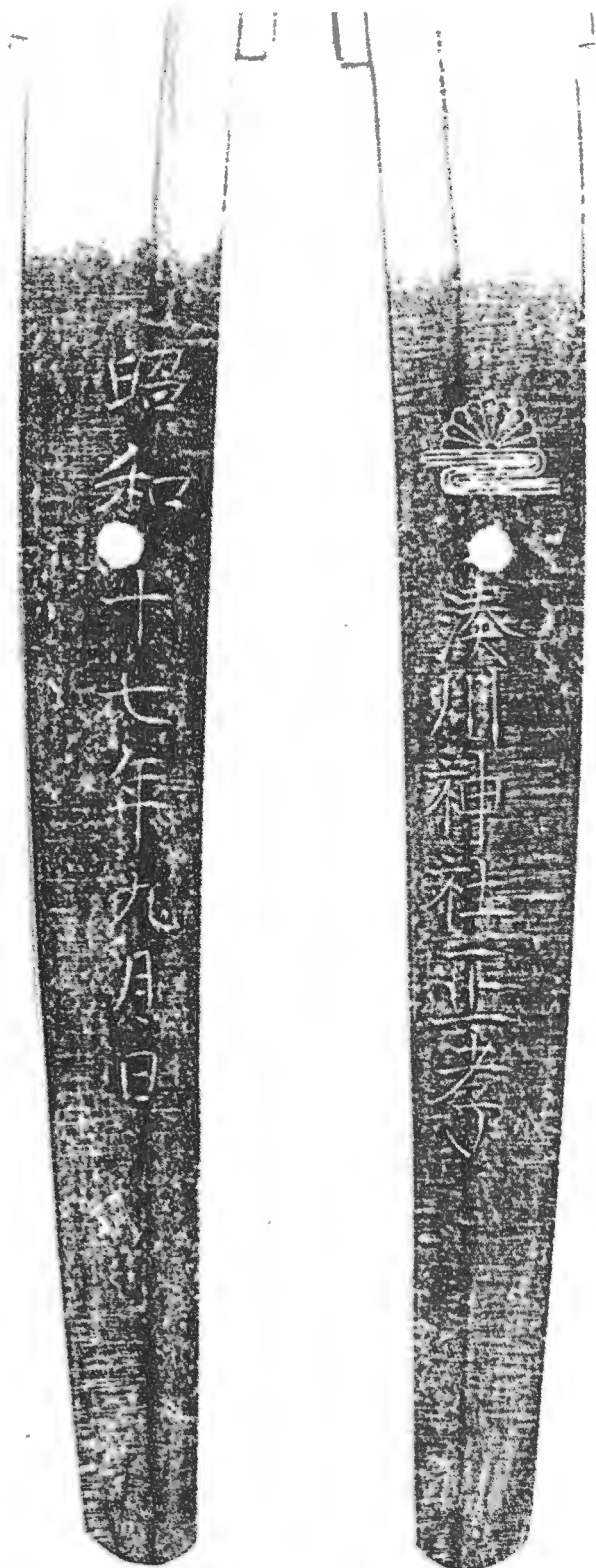 湊川神社正孝
昭和十七年九月日